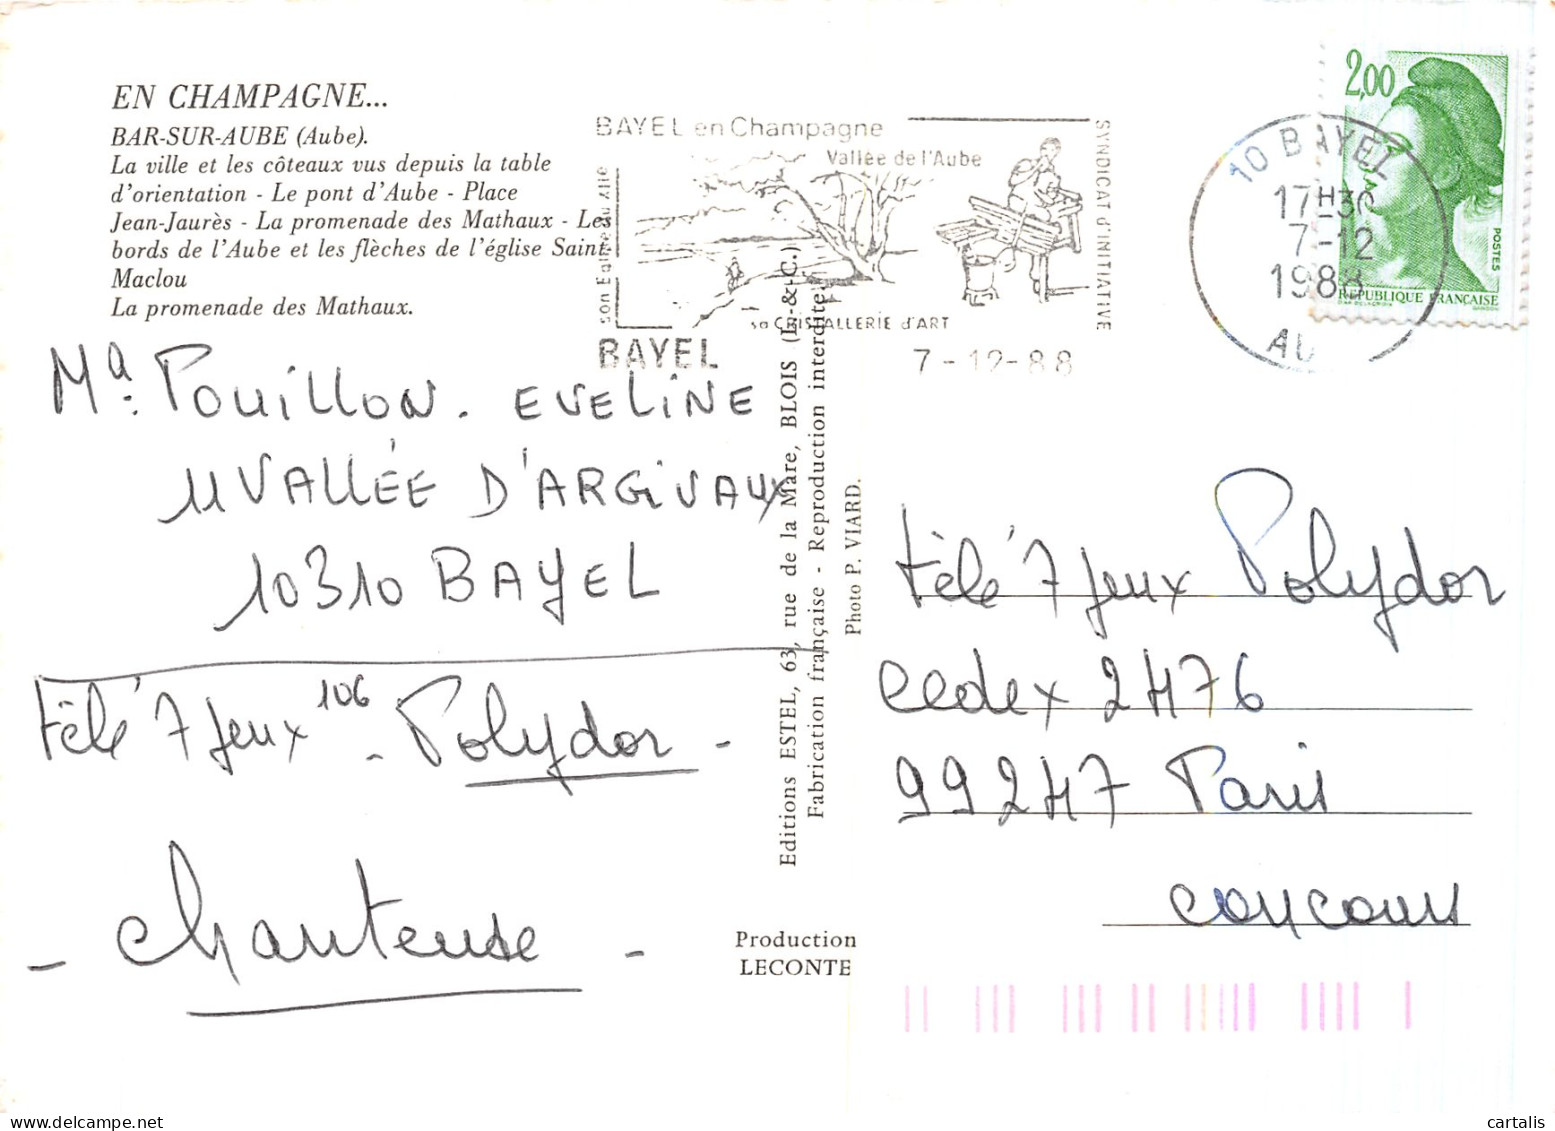 EN CHAMPAGNE...
BAR-SUR-AUBE (Aube).
La ville et les côteaux vus depuis la table
d'orientation - Le pont d'Aube - Place
Jean-Jaurès - La promenade des Mathaux - Les
bords de l'Aube et les flèches de l'église Saint-
Maclou
La promenade des Mathaux.
BAYEL en Champagne
Vallée de l'Aube
son Eglise du XIIe
sa CRISTALLERIE d'ART
SYNDICAT d'INITIATIVE
BAYEL
7-12-88
10 BAYEL
17H30
7-12
1988
AU
2,00
POSTES
REPUBLIQUE FRANÇAISE
Ma. POUILLON. EVELINE
11 VALLÉE D'ARGIVAUX
10310 BAYEL
télé 7 jeux 106 - Polydor -
- Chanteuse -
Editions ESTEL, 63, rue de la Mare, BLOIS (L.-&-C.)
Fabrication française - Reproduction interdite.
Photo P. VIARD.
Production
LECONTE
télé 7 jeux Polydor
cedex 2476
99247 Paris
concours
cartalis